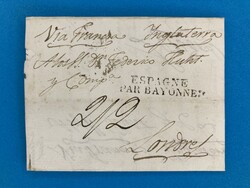 Via Francia Inglaterra
A los S.res D.n Federico Huht.
y Comp.a
ESPAGNE
PAR BAYONNE
2/2
Londres